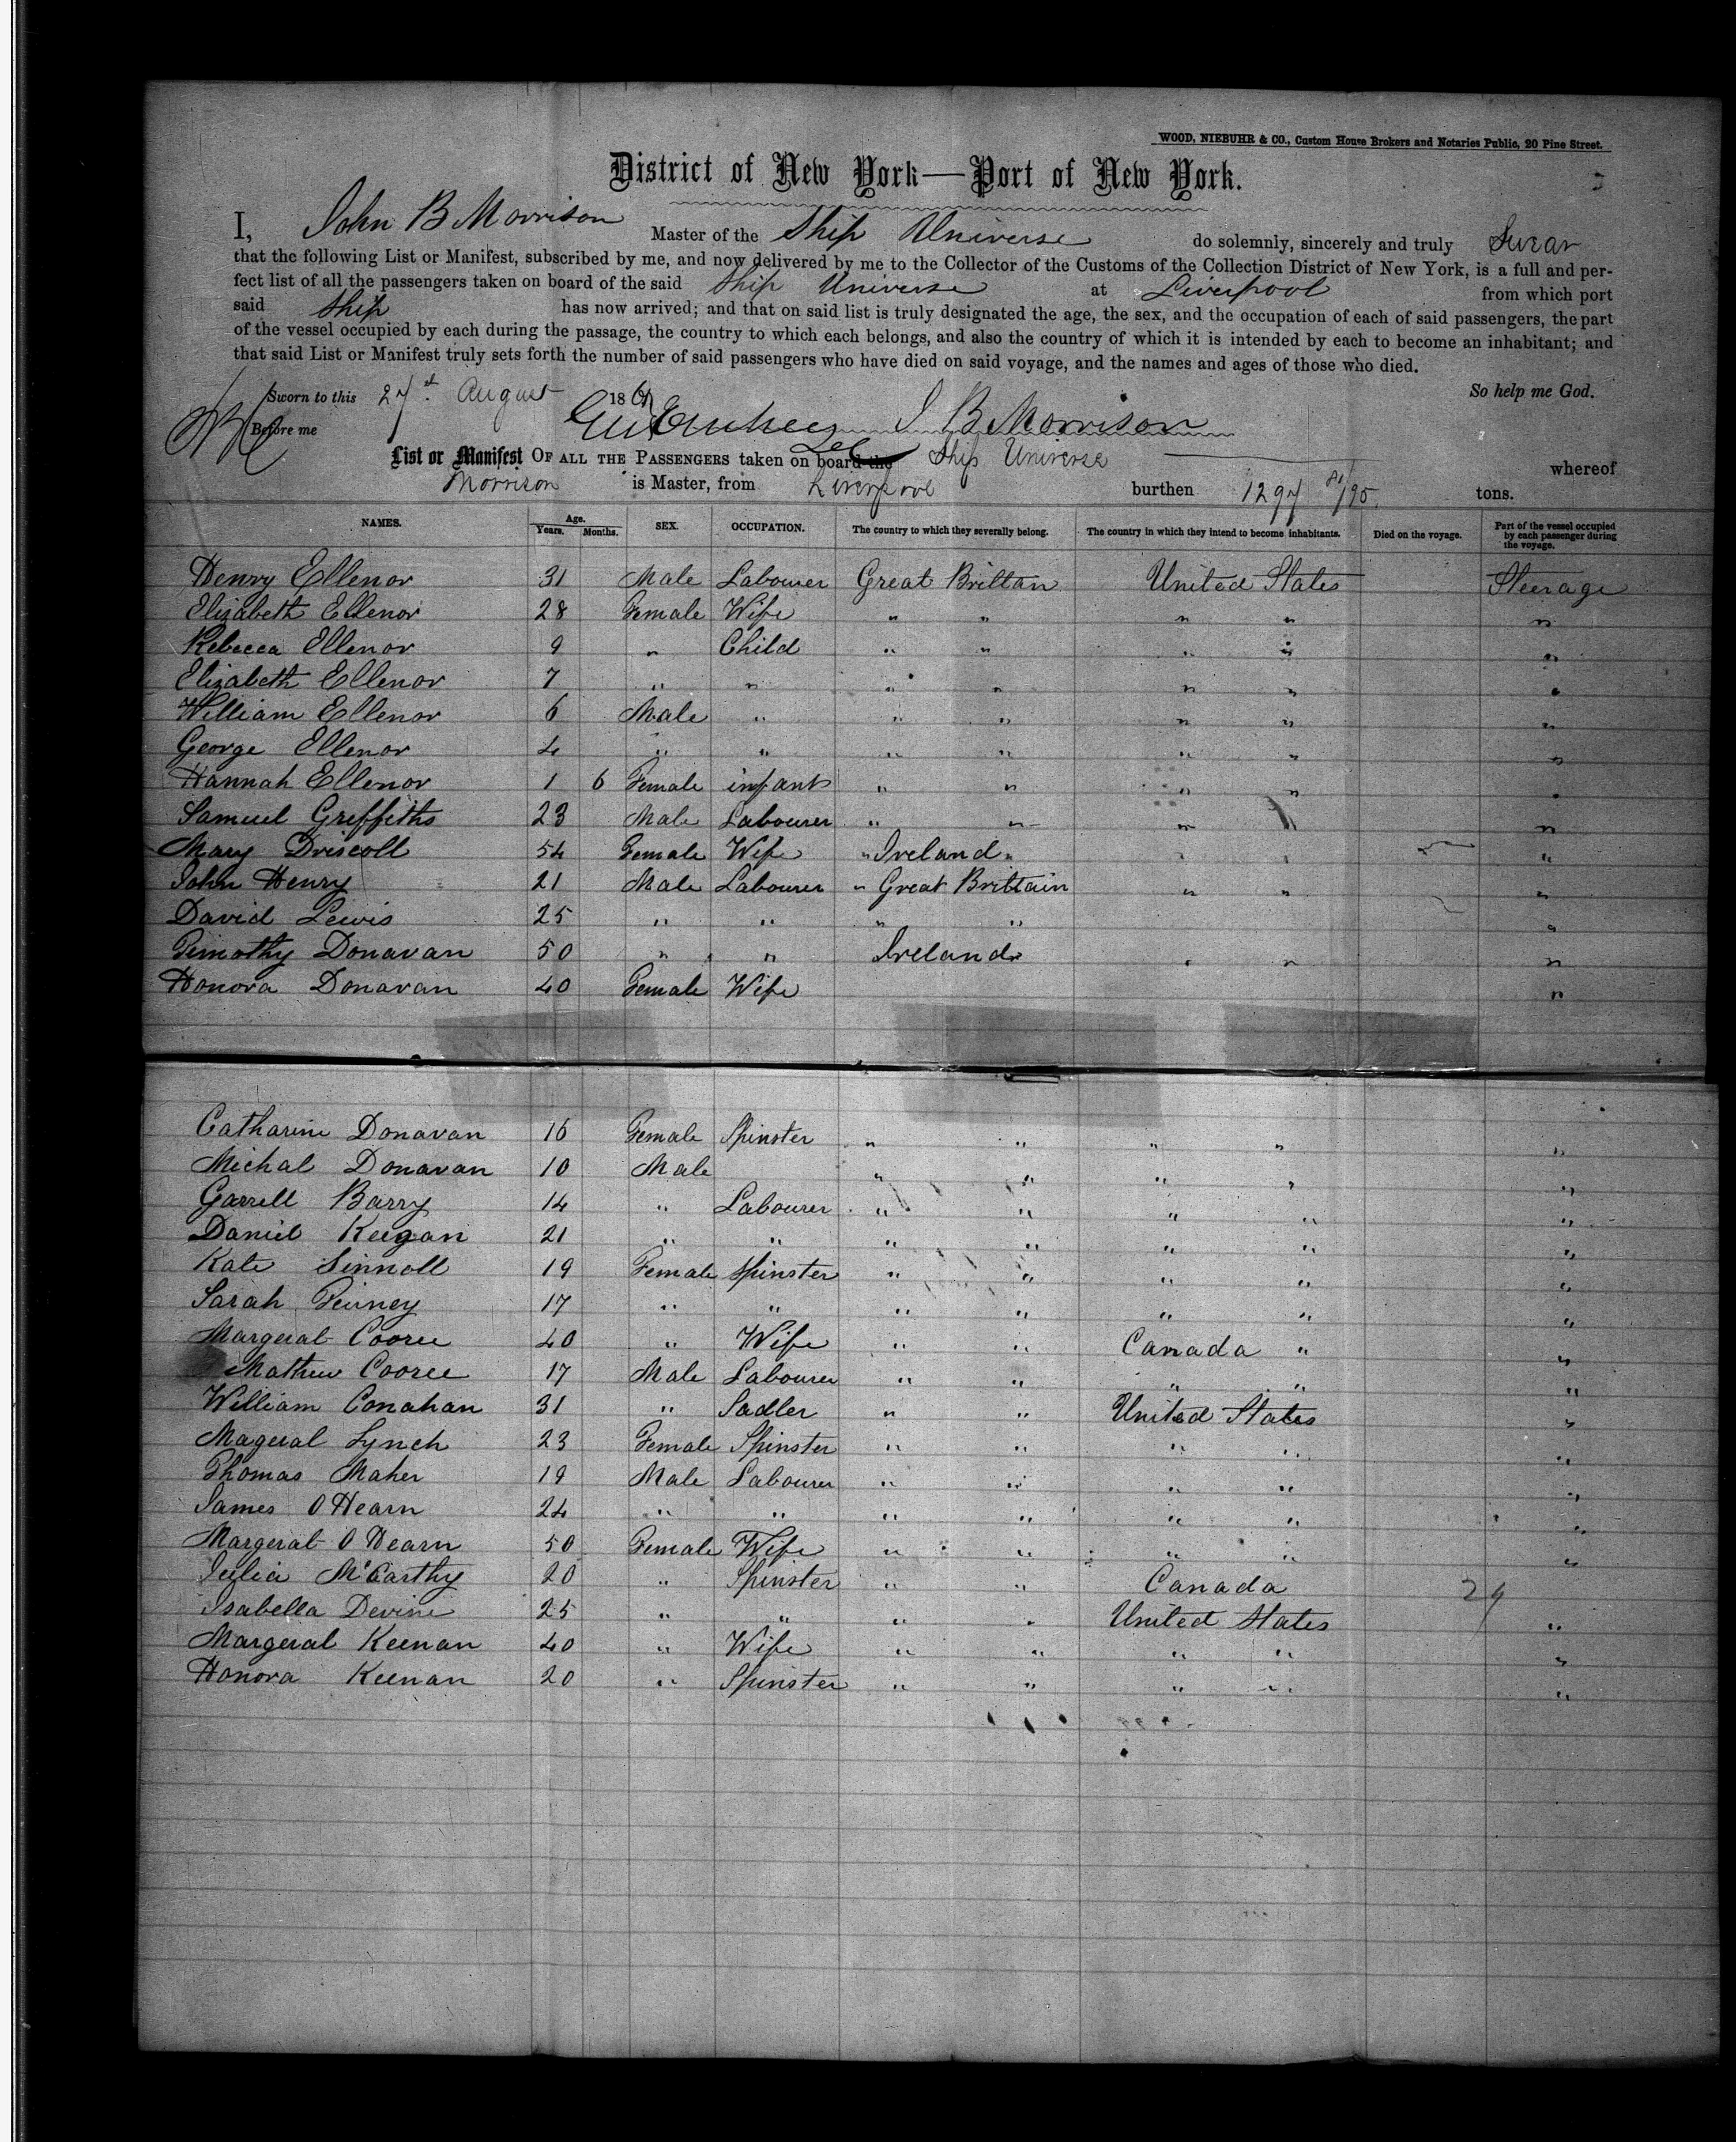 WOOD, NIEBUHR & CO., Custom House Brokers and Notaries Public, 20 Pine Street.
District of New York—Port of New York.
I, John B Morrison Master of the Ship Universe do solemnly, sincerely and truly Swear
that the following List or Manifest, subscribed by me, and now delivered by me to the Collector of the Customs of the Collection District of New York, is a full and per-
fect list of all the passengers taken on board of the said Ship Universe at Liverpool from which port
said Ship has now arrived; and that on said list is truly designated the age, the sex, and the occupation of each of said passengers, the part
of the vessel occupied by each during the passage, the country to which each belongs, and also the country of which it is intended by each to become an inhabitant; and
that said List or Manifest truly sets forth the number of said passengers who have died on said voyage, and the names and ages of those who died.
Sworn to this 27 August 186 So help me God.
Before me J B Morrison
List or Manifest OF ALL THE PASSENGERS taken on board the Ship Universe whereof
Morrison is Master, from Liverpool burthen 1297 81/95 tons.
NAMES. Age. Years. Months. SEX. OCCUPATION. The country to which they severally belong. The country in which they intend to become inhabitants. Died on the voyage. Part of the vessel occupied by each passenger during the voyage.
Henry Ellenor 31 Male Labourer Great Brittan United States Steerage
Elizabeth Ellenor 28 Female Wife " " " " "
Rebecca Ellenor 9 " Child " " " " "
Elizabeth Ellenor 7 " " " " " " "
William Ellenor 6 Male " " " " " "
George Ellenor 4 " " " " " " "
Hannah Ellenor 1 6 Female infant " " " " "
Samuel Griffiths 23 Male Labourer " " " " "
Mary Driscoll 54 Female Wife " Ireland " " " "
John Henry 21 Male Labourer " Great Brittain " " "
David Lewis 25 " " " " "
Timothy Donavan 50 " " Ireland " " " "
Honora Donavan 40 Female Wife "
Catharine Donavan 16 Female Spinster " " " " "
Michal Donavan 10 Male " " " " "
Garrell Barry 14 " Labourer " " " " "
Daniel Keegan 21 " " " " " " "
Kate Sinnoll 19 Female Spinster " " " " "
Sarah Feiney 17 " " " " " " "
Margerat Cooree 40 " Wife " " Canada " "
Mathew Cooree 17 Male Labourer " " " " "
William Conahan 31 " Sadler " " United States "
Magerat Lynch 23 Female Spinster " " " " "
Thomas Maher 19 Male Labourer " " " " "
James O Hearn 24 " " " " " " "
Margerat O Hearn 50 Female Wife " " " " "
Julia McCarthy 20 " Spinster " " Canada 29
Isabella Devine 25 " " " " United States "
Margerat Keenan 40 " Wife " " " " "
Honora Keenan 20 " Spinster " " " " "